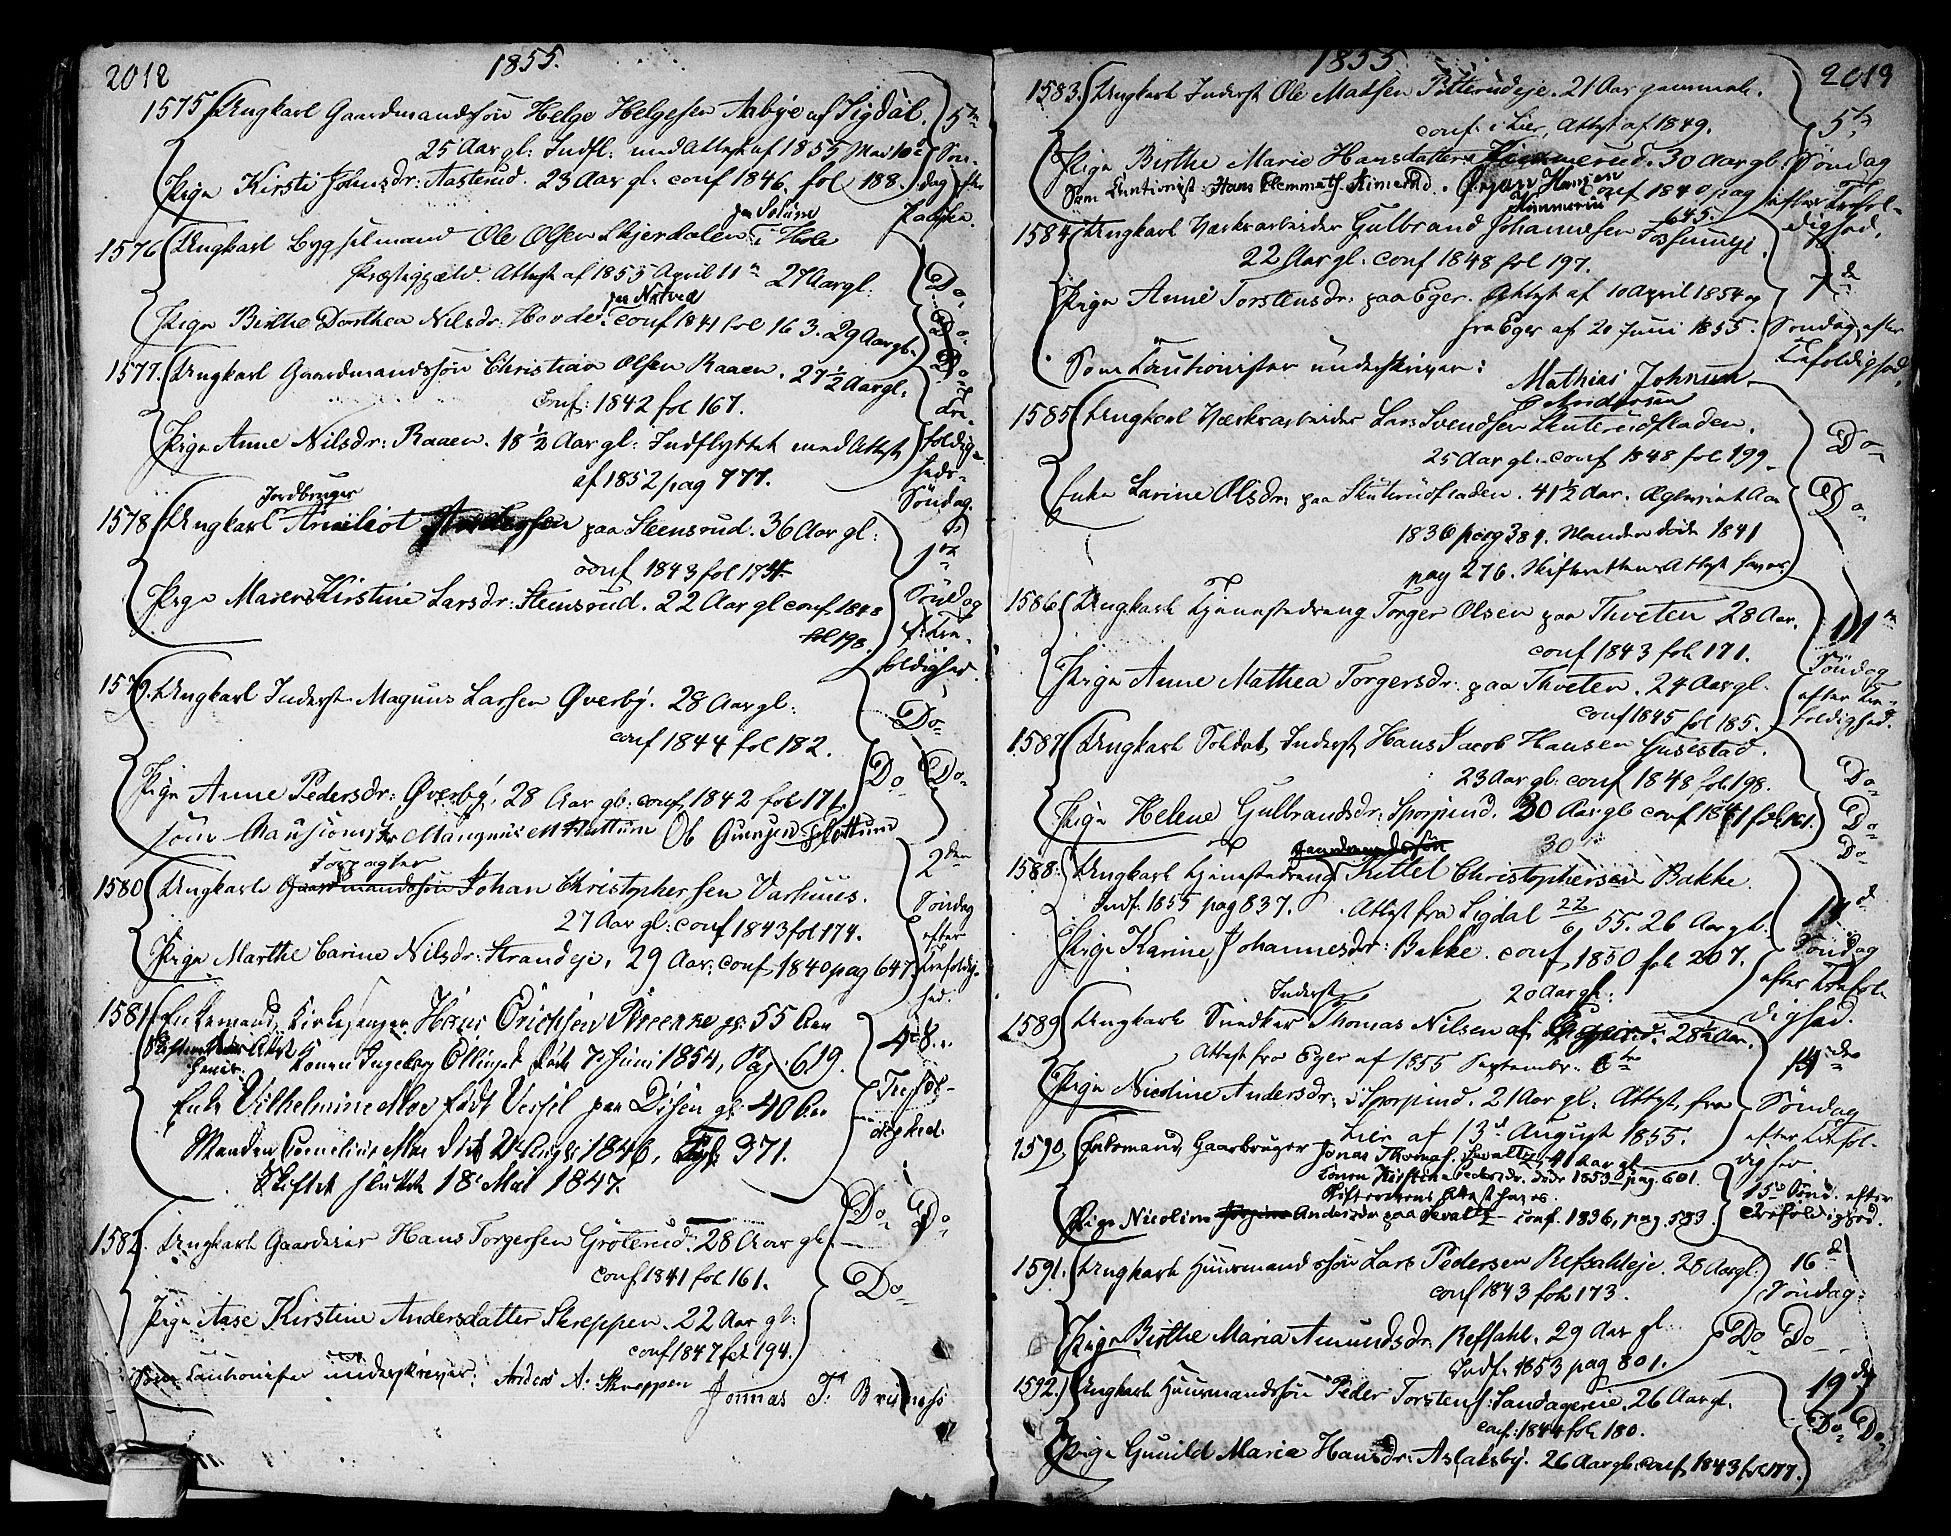 2012
1855.
1575 Ungkarl Gaardmandssøn Helge Helgesen Asbye af Sigdal. 5te
25 Aar gl: Indfl: med Attest af 1855 Mai 10de Søn-
Pige Kirsti Johnsdr: Aasterud. 23 Aar gl. conf 1846. fol 188. dag efter
Paaske.
paa Solum
1576 Ungkarl Bygselmand Ole Olsen Skjerdalen i Hole
Præstegjæld. Attest af 1855 April 11te 27 Aar gl:
Do.
paa Næstved
Pige Birthe Dorthea Nilsdr: Hovde. conf 1841 fol 163. 29 Aar gl. Do.
1577. Ungkarl Gaardmandssøn Christian Olsen Raaen. 27½ Aar gl. Do.
Conf: 1842 fol 167. Tre-
Pige Anne Nilsdr: Raaen. 18½ Aar gl: Indflyttet med Attest foldig-
af 1852 pag 777. heds-
Jordbruger
Søndag.
1578 Ungkarl paa Steensrud. 36 Aar gl: 1ste
conf 1843 fol 174.
Pige Maren Kirstine Larsdr: Stensrud. 22 Aar gl conf 1848 Søndag
fol 198. e: Tre-
foldighed.
1579. Ungkarl Inderst Magnus Larsen Øverby. 28 Aar gl:
conf 1844 fol 182. Do.
Pige Anne Pedersdr: Øverby. 28 Aar gl: conf 1842 fol 171 Do Do.
som Ole Gunersen
Forpagter
1580 Ungkarl Gaardmandssøn Johan Christophersen Varhuus. 2den
27 Aar gl: conf 1843 fol 174. Søndag
Pige Marthe Carine Nilsdr: Strandeje, 29 Aar: conf 1840 pag 647 efter
Trefoldig-
hed.
1581 Enkemand, Kirkesanger Hans Erichsen gl: 55 Aar 4de S..
Skifteretens Attest haves. Konen Ingeborg død 7 Juni 1854, Pag: 619.
Enke Vilhelmine Moe født paa Disen gl: 40 Aar Trefol-
Manden Cornelius Moe død 1846, 371. dighed.
Skiftet sluttet 18 Mai 1847.
1582. Ungkarl Gaardeier Hans Torgersen Grøterud. 28 Aar gl. Do. Do.
conf 1841 fol 161.
Do.
Pige Aase Kirstine Andersdatter Skreppen. 22 Aar gl:
conf 1847 fol 194.
Som Cautionister underskriver: Anders A: Skreppen
Jonnas T:

1855
2013
1583. Ungkarl Inderst Ole Madsen Pøtterudeje. 21 Aar gammel.
conf: i Lier, Attest af 1849. 5te
Pige Birthe Marie Hansdatter 30 Aar gl. Søndag
Som Cautionist Hans conf 1840 pag efter Trefol-
645. dighed.
1584 Ungkarl Værksarbeider Gulbrand Johannesen Fossumeje.
22 Aar gl. conf 1848 fol 197.
Pige Anne Torstensdr: paa Eger. Attest af 10 April 1854 og 7de
fra Eger af 20 Juni 1855. Søndag efter
Som Cautionister underskriver: Trefoldighed.
Mathias Johnsen
1585 Ungkarl Værksarbeider Lars Svendsen Skuterudfladen.
25 Aar gl. conf 1848 fol 199. Do
Enke Karine Olsdr: paa Skuterudfladen. 41½ Aar. Do.
1836 pag 389. Manden døde 1841
pag 276. Skifterettens Attest haves
1586 Ungkarl Tjenestedreng Torger Olsen paa Thveten 28 Aar. 11te
conf 1843 fol 171.
Pige Anne Mathea Torgersdr: paa Thveten. 24 Aar gl: Søndag
conf 1845 fol 185. efter Tre-
foldighed.
1587 Ungkarl Soldat, Inderst Hans Jacob Hansen Gusestad.
23 Aar gl: conf 1848, fol 198. Do.
Pige Helene Gulbrandsdr: 30 Aar gl conf 1841 fol 161. Do.
30 Do.
Gaardmandssøn
1588: Ungkarl Tjenestedreng Kittel Christophersen Bakke.
Indf. 1855 pag 837. Attest fra Sigdal 22/6 55. 26 Aar gl.
Pige Karine Johannesdr: Bakke. conf 1850 fol 207. Søndag
20 Aar gl: efter Trefol-
dighed.
Inderst
1589 Ungkarl Snedker Thomas Nilsen af 28½ Aar.
Attest fra Eger af 1855 September 14de
Pige Nicoline Andersdr: i 21 Aar gl: Attest fra Søndag
Lier af 13de August 1855. efter Trefol-
dighed.
1590 Enkemand, Gaarbruger Jonas Thomas. 41 Aar gl
Konen Kirstine Pedersdr. død 1853 pag. 601.
Skifterettens Attest haves. 15de Sønd. efter
Pige Nicoline Andersdr paa conf. 1836, pag. 583 Trefoldighed.
1591. Ungkarl Huusmandssøn Lars Pedersen Refsahleje. 28 Aar gl: 16de
conf 1843 fol 173. Søndag:
Pige Birthe Maria Amundsdr: Refsahl. 29 Aar gl: Do Do
Indf. 1853 pag 801.
1592. Ungkarl Huusmandssøn Peder Torstens: 26 Aar gl. 19de
conf: 1844 fol 180. Do Do.
Pige Gunild Maria Hansdr: Aslaksby. 26 Aar gl: conf 1843 fol 177.